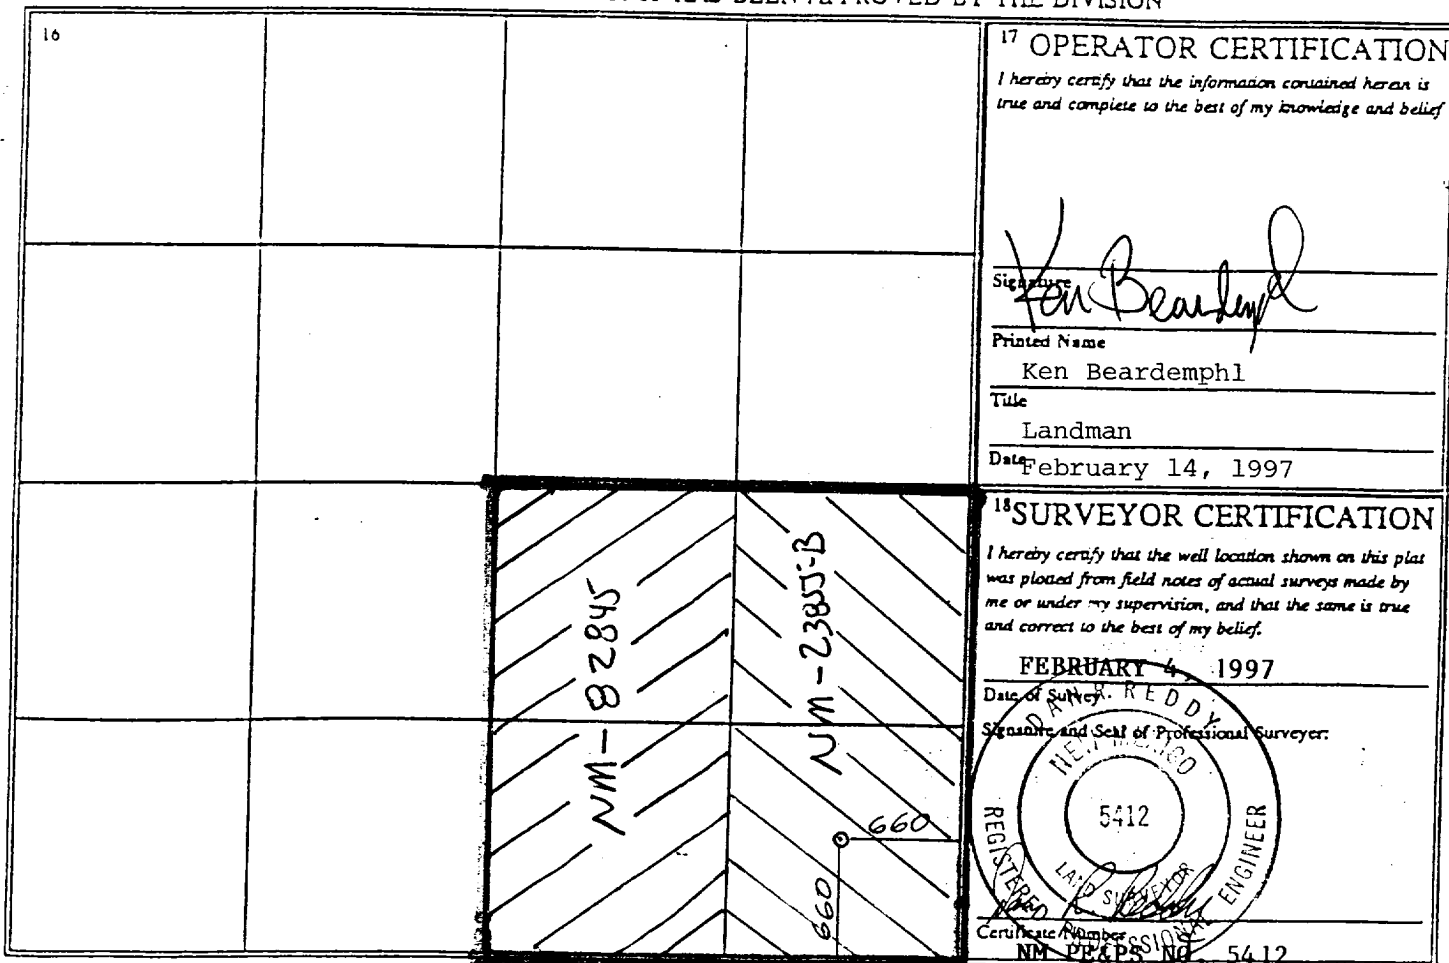 HAS BEEN APPROVED BY THE DIVISION
16
17 OPERATOR CERTIFICATION
I hereby certify that the information contained herein is
true and complete to the best of my knowledge and belief
Ken Beardemphl
Signature
Printed Name
Ken Beardemphl
Title
Landman
Date
February 14, 1997
18 SURVEYOR CERTIFICATION
I hereby certify that the well location shown on this plat
was plotted from field notes of actual surveys made by
me or under my supervision, and that the same is true
and correct to the best of my belief.
FEBRUARY 4, 1997
Date of Survey
Signature and Seal of Professional Surveyer:
DAN R. REDDY
NEW MEXICO
5412
LAND SURVEYOR
REGISTERED PROFESSIONAL ENGINEER
Certificate Number
NM PE&PS NO. 5412
NM-82845
NM-23855-B
660
660